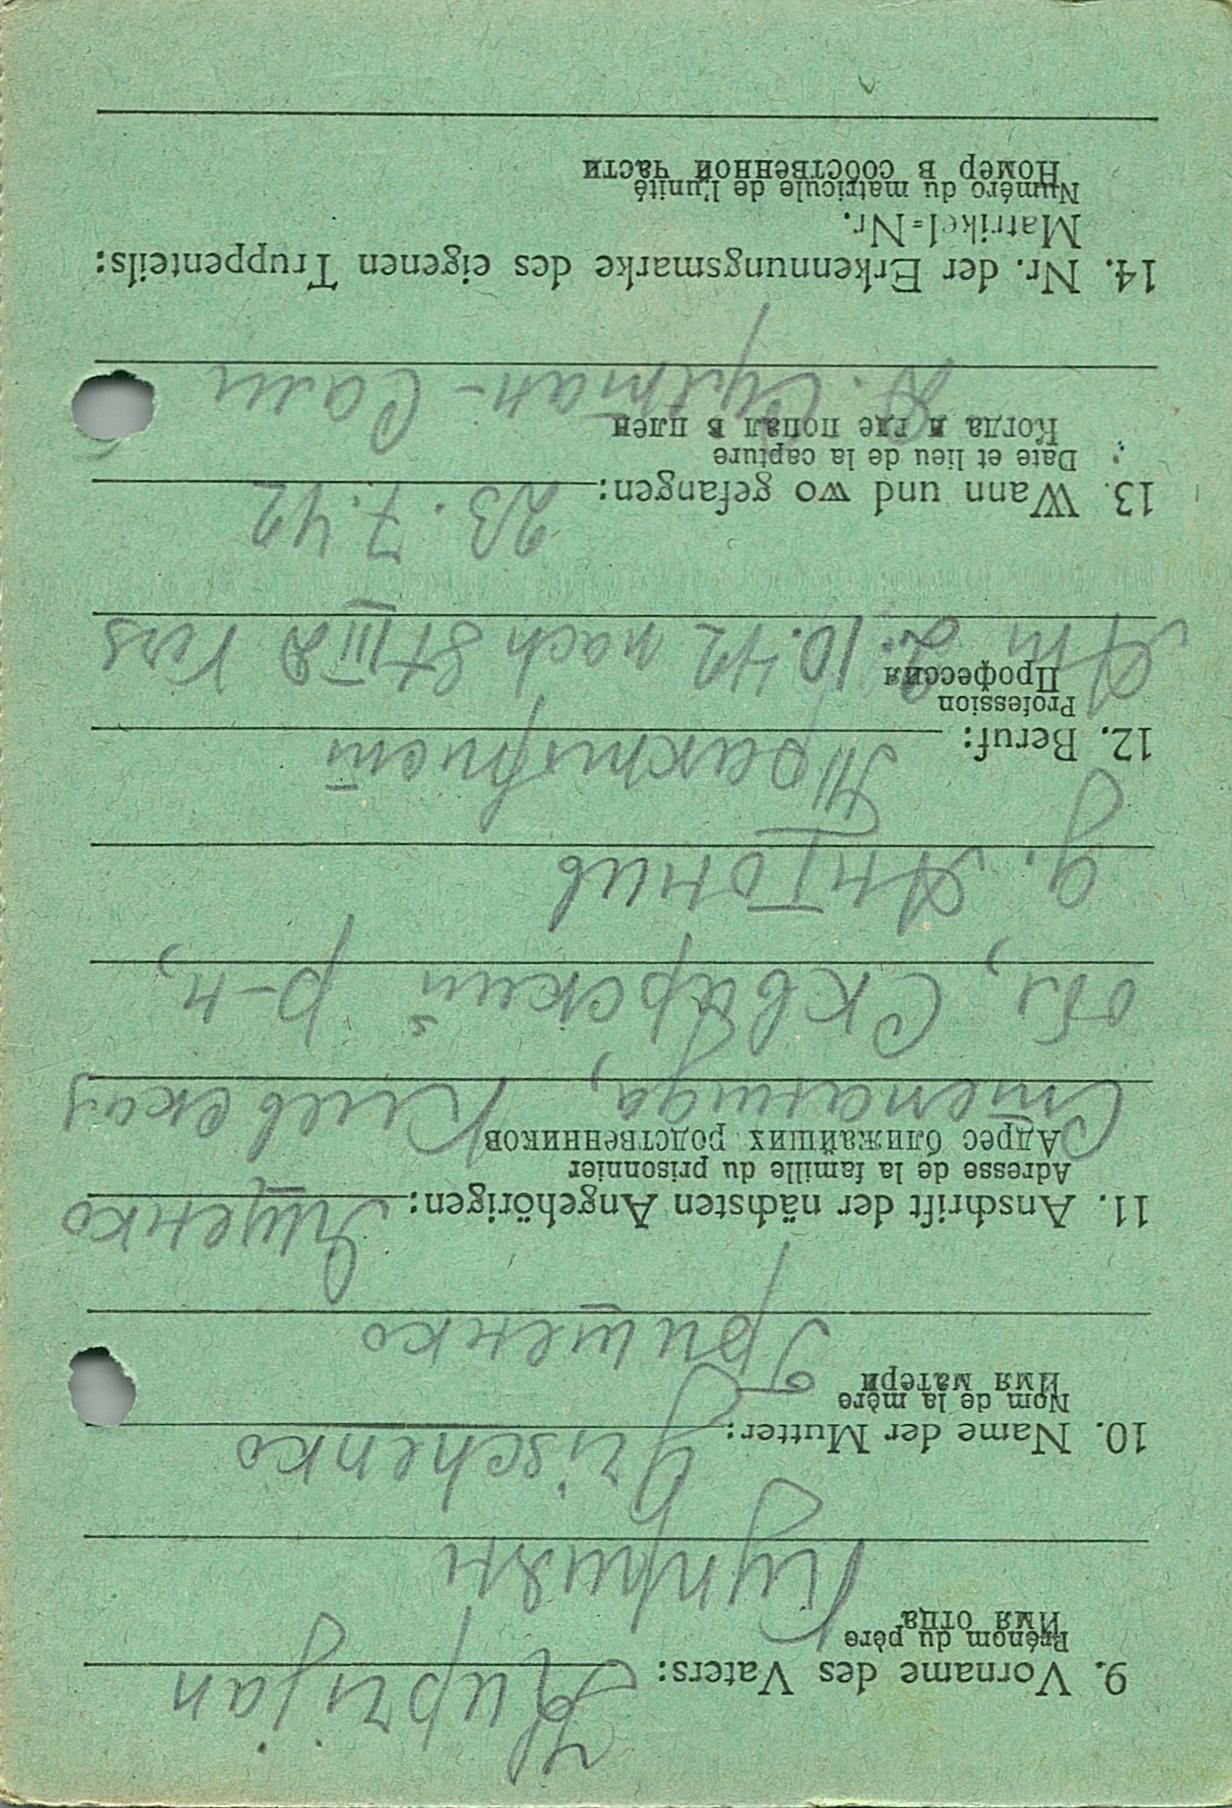 9. Vorname des Vaters: Kuprijan
Prénom du père
Имя отца
Куприян
10. Name der Mutter: Grischenko
Nom de la mère
Имя матери
Грищенко
11. Anschrift der nächsten Angehörigen: Ященко
Adresse de la famille du prisonnier
Адрес ближайших родственников
Степанида, Киевская
обл, Сквирский р-н,
д. Антонив
12. Beruf: Тракторист
Profession
Профессия
Am 2.10.42 nach St III
13. Wann und wo gefangen: 23.7.42
Date et lieu de la capture
Когда и где попал в плен
14. Nr. der Erkennungsmarke des eigenen Truppenteils:
Matrikel=Nr.
Numéro du matricule de l'unité
Номер в собственной части